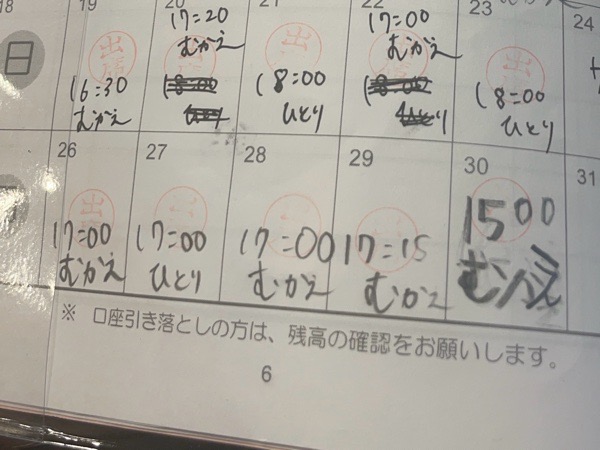 18
19
20
21
22
23
24
日
16:30
むかえ
17:20
むかえ
18:00
18:00
ひとり
17:00
むかえ
18:00
ひとり
18:00
ひとり
26
27
28
29
30
31
17:00
むかえ
17:00
ひとり
17:00
むかえ
17:15
むかえ
1500
むかえ
出
出
出
※ 口座引き落としの方は、残高の確認をお願いします。
6